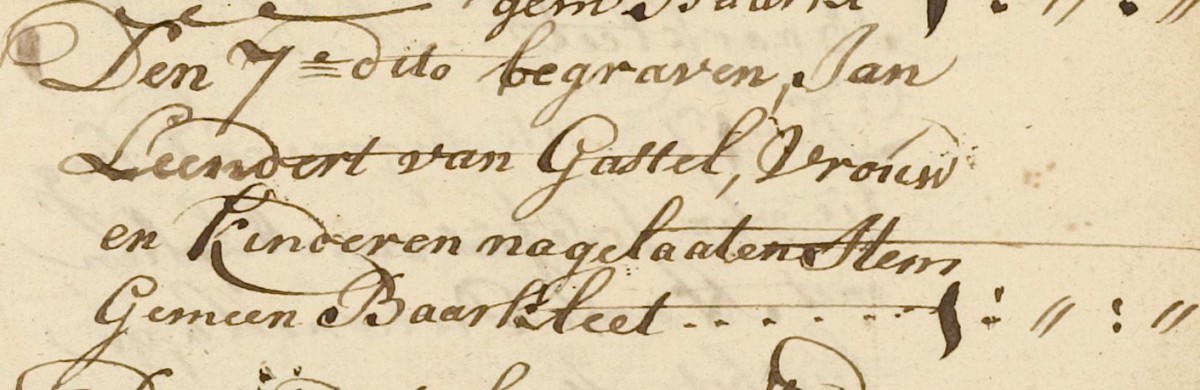 gem Baarkl
Den 7e dito begraven, Jan
Leendert van Gastel, Vrouw
en Kinderen nagelaaten Item
Gemeen Baarkleet . . . . . . . : // : //